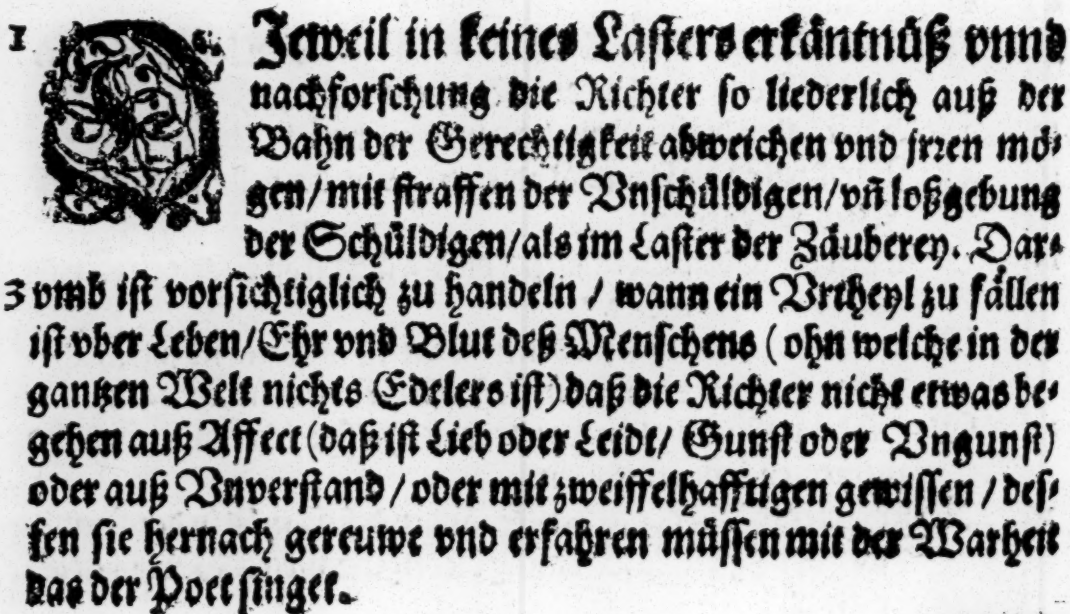 1 DJeweil in keines Lasters erkäntnüß vnnd
nachforschung die Richter so liederlich auß der
Bahn der Gerechtigkeit abweichen vnd jrren mö-
gen/mit straffen der Vnschüldigen/vñ loßgebung
der Schüldigen/als im Laster der Zäuberey. Dar-
3 vmb ist vorsichtiglich zu handeln / wann ein Vrtheyl zu fällen
ist vber Leben/Ehr vnd Blut deß Menschens (ohn welche in der
gantzen Welt nichts Edelers ist) daß die Richter nicht etwas be-
gehen auß Affect (daß ist Lieb oder Leidt/ Gunst oder Vngunst)
oder auß Vnverstand / oder mit zweiffelhafftigen gewissen / des-
sen sie hernach gereuwe vnd erfahren müssen mit der Warheit
das der Poet singet.